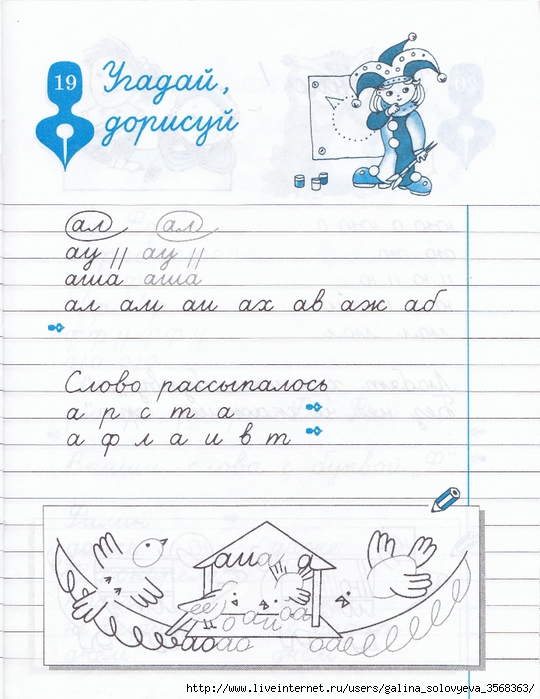 19
Угадай,
дорисуй
ал ал
ау ау
аша аша
ал ам аи ах ав аж аб
Слово рассыпалось
а р с т а
а ф л а и в т
http://www.liveinternet.ru/users/galina_solovyeva_3568363/